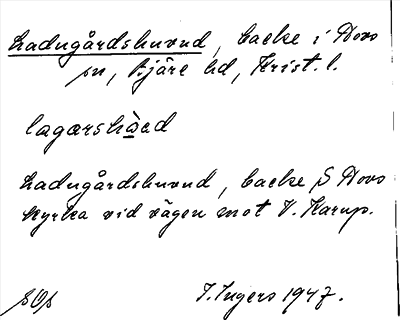 Ladugårdshuvud, backe i Hovs
sn, Bjäre hd, Krist. l.
lagarshàed
Ladugårdshuvud, backe S Hovs
kyrka vid vägen mot V. Karup.
sOs I. Ingers 1947.